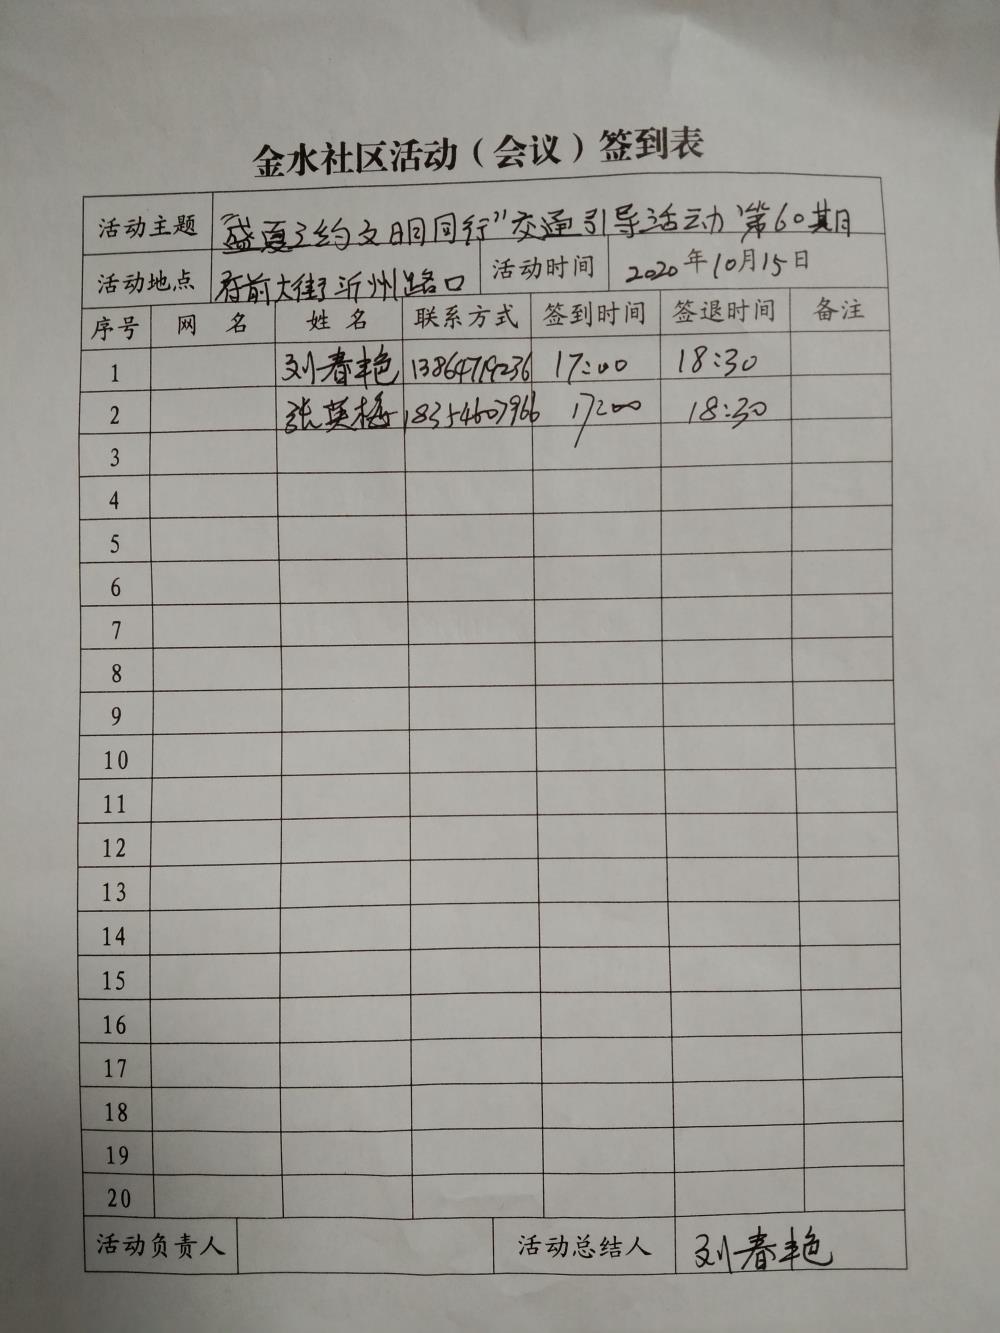 金水社区活动（会议）签到表
活动主题 “盛夏之约文明同行”交通引导活动“第60期
活动地点 府前大街沂州路口 活动时间 2020年10月15日
序号 网 名 姓 名 联系方式 签到时间 签退时间 备注
1 刘春艳 13864719236 17:00 18:30
2 张英梅 18354607966 17:00 18:30
3
4
5
6
7
8
9
10
11
12
13
14
15
16
17
18
19
20
活动负责人 活动总结人 刘春艳